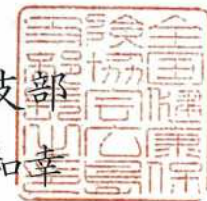 支部
和幸
全国健康保
険協会
支部長之印